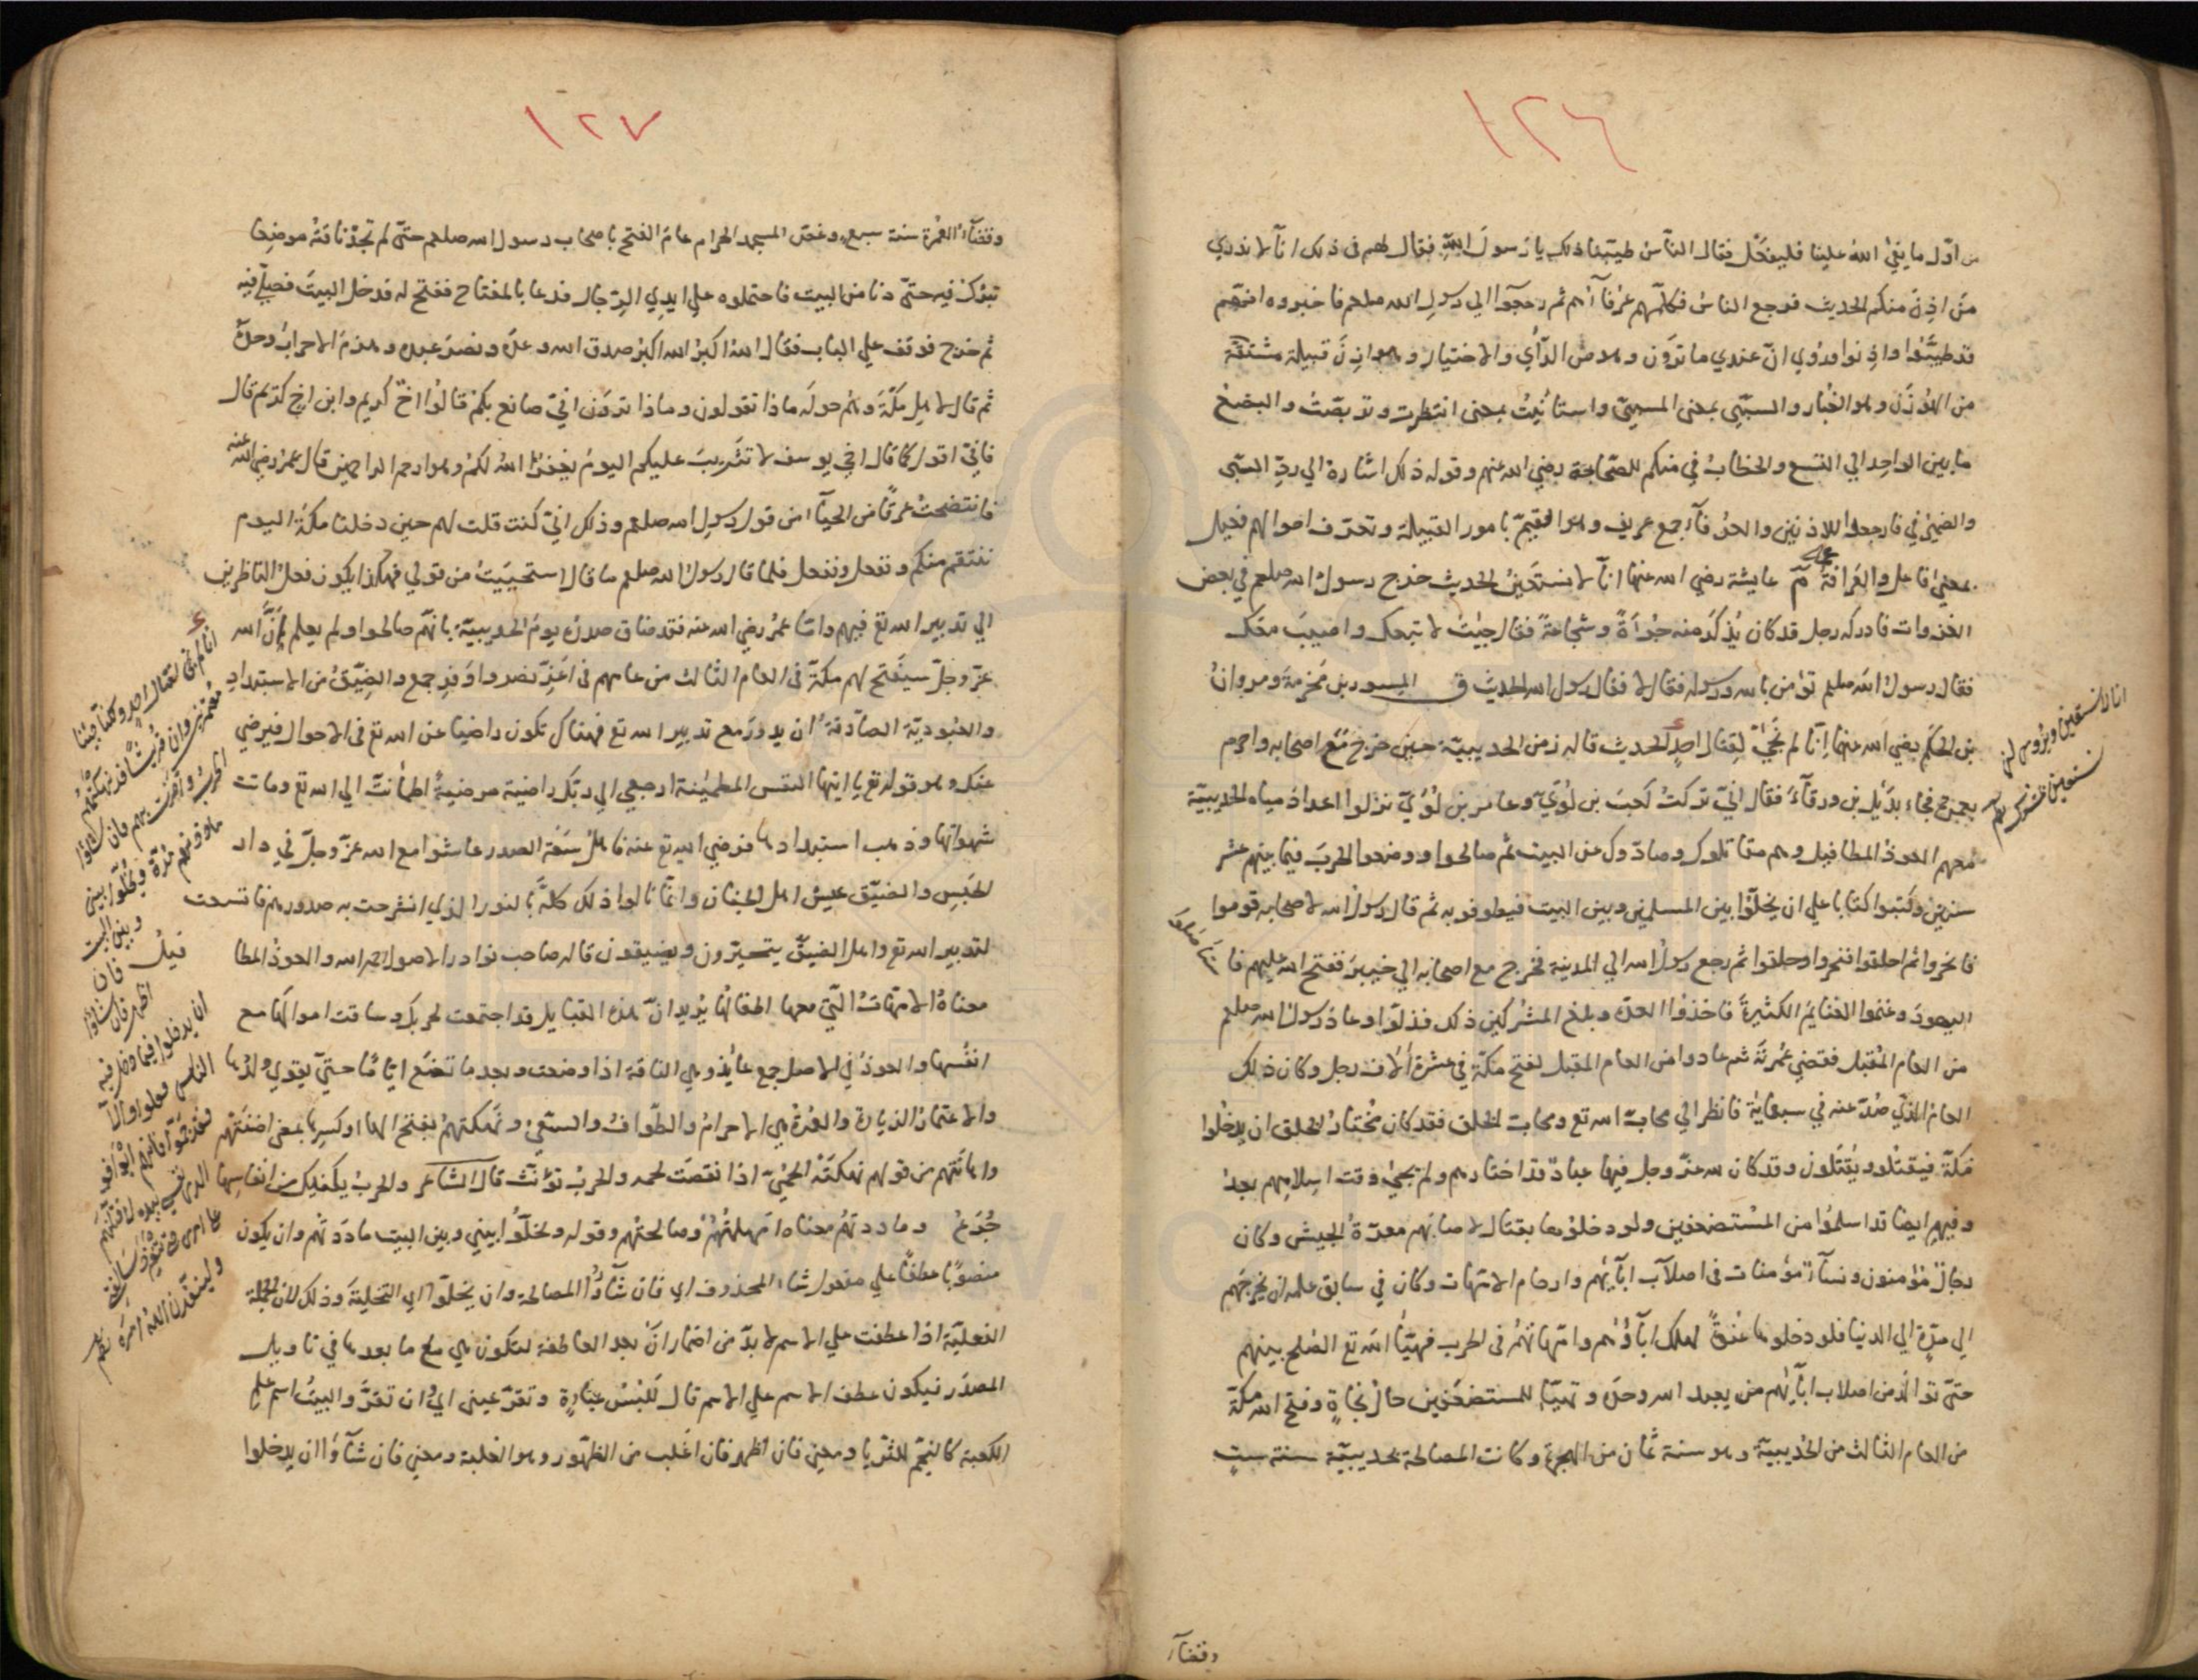 ١٢٦
من اوّل ما يفيئ الله علينا فليفعل فقال الناس طيّبنا ذلك يا رسول الله فقال لهم فى ذلك انّا لا ندري
من اذن منكم الحديث فرجع الناس فكلّمهم عرفآؤهم ثم رجعوا الي رسول الله صلعم فاخبروه انهم
قد طيّبوا واذنوا وروي انّ عندي ما ترون وهو من الرأي والاختيار وهوازن قبيلة مشتقة
من الهوزن وهو الغبار والسبي بمعنى المسبيّ واستأنيت بمعنى انتظرت وتربصت والبضع
ما بين الواحد الي التسع والخطاب في منكم للصحابة رضي الله عنهم وقوله ذلك اشارة الي ردّ السبى
والضمير في فارجعوا للاذنين والعرفآء جمع عريف وهو القيّم بامور القبيلة وتعرّف احوالهم فعيل
بمعنى فاعل والعرافة عمله م عايشة رضي الله عنها انّا لا نستعين الحديث خرج رسول الله صلعم في بعض
الغزوات فادركه رجل قد كان يذكر منه جرأة وشجاعة فقال جيت لاتبعك واصيب معك
فقال رسول الله صلعم تؤمن بالله ورسوله فقال لا فقال رسول الله الحديث ق المسور بن مخرمة ومروان
بن الحكم رضي الله عنهما انّا لم نجئ لقتال احد الحديث قاله زمن الحديبية حين خرج مع اصحابه واحرم
بعمرة فجاء بديل بن ورقآء فقال انّي تركت كعب بن لؤيّ وعامر بن لؤيّ نزلوا اعداد مياه الحديبية
معهم العوذ المطافيل وهم مقاتلوك وصادّوك عن البيت ثم صالحوا ووضعوا الحرب فيما بينهم عشر
سنين وكتبوا كتابا علي ان يخلّوا بين المسلمين وبين البيت فيطوفو به ثم قال رسول الله لاصحابه قوموا
فانحروا ثم احلقوا فنحروا وحلقوا ثم رجع رسول الله الي المدينة فخرج مع اصحابه الي خيبر ففتح الله عليهم فا
اليهود وغنموا الغنايم الكثيرة فاخذوا العدّة وبلغ المشركين ذلك فذلّوا وعاد رسول الله صلعم
من العام المقبل فقضي عمرته ثم عادوا من العام المقبل لفتح مكة في عشرة آلاف رجل وكان ذلك
العام الذي صُدّ عنه في سبعماية فانظر الي محابّ الله تع ومحابّ الخلق فقد كان مختار الخلق ان يدخلوا
مكة فيقتلو ويقتلون وقد كان لله عزّ وجل فيها عباد قد اختارهم ولم يجئ وقت اسلامهم بعد
وفيهم ايضا قد اسلموا من المستضعفين ولو دخلوها بقتال لاصابهم معرّة الجيش وكان
رجال مؤمنون ونسآء مؤمنات فى اصلاب ابآيهم وارحام الامهات وكان في سابق علمه ان يخرجهم
الي مدّة الي الدنيا فلو دخلوها عنوة لهلك ابآؤهم وامهاتهم فى الحرب فهيّأ الله تع الصلح بينهم
حتى توالد من اصلاب ابآئهم من يعبد الله وحده وتهيّا للمستضعفين حال نجاة وفتح الله مكة
من العام الثالث من الحديبية وهو سنة ثمان من الهجرة وكانت المصالحة بحديبية سنة ست
انا لا نستعين
وقضآء
١٢٧
وقضآء العمرة سنة سبع وغصّ المسجد الحرام عام الفتح باصحاب رسول الله صلعم حتى لم تجد ناقته موضعا
تبرك فيه حتى دنا من البيت فاحتملوه علي ايدي الرجال فدعا بالمفتاح ففتح له فدخل البيت فصلّي فيه
ثم خرج فوقف علي الباب فقال الله اكبر الله اكبر صدق الله وعده ونصر عبده وهزم الاحزاب وحده
ثم قال لاهل مكة وهم حوله ماذا تقولون وماذا ترون اني صانع بكم قالوا اخ كريم وابن اخ كريم قال
فانّي اقول كما قال اخي يوسف لا تثريب عليكم اليوم يغفر الله لكم وهو ارحم الراحمين قال عمر رضي الله عنه
فانتضحت عرقا من الحيآء من قول رسول الله صلعم وذلك انّي كنت قلت لهم حين دخلنا مكة اليوم
ننتقم منكم ونفعل ونفعل فلما قال رسول الله صلعم ما قال استحييت من قولي فهكذا يكون فعل الناظرين
الي تدبير الله تع فيهم وامّا عمر رضي الله عنه فقد ضاق صدره يوم الحديبية بانهم صالحوا ولم يعلم بأنّ الله
عزّ وجلّ سيفتح لهم مكة فى العام الثالث من عامهم فى اعزّ نصر واوفر جمع والضيق من الاستبداد
والعبودية الصادقة ان يدور مع تدبير الله تع فهناك تكون راضيا عن الله تع فى الاحوال فيرضي
عنك وهو قوله تع يا ايتها النفس المطمئنة ارجعي الي ربك راضية مرضية اطمأنت الي الله تع وماتت
شهواتها وذهب استبدادها فرضي الله تع عنه فاهل سعة الصدر عاشوا مع الله عزّ وجلّ في دار
الحبس والضيق عيش اهل الجنان وانما نالوا ذلك كلّه بالنور الذي انشرحت به صدورهم فاتسعت
لتدبير الله تع واهل الضيق يتحيرون ويضيقون قاله صاحب نوادر الاصول رحمه الله والعوذ المطا
معناه الامهات التي معها اطفالها يريد انّ هذه القبايل قد اجتمعت لحربك وساقت اموالها مع
انفسها والعوذ في الاصل جمع عائذ وهي الناقة اذا وضعت وبعد ما تضع ايّاما حتى يقوي ولدها
والاعتمار الزيارة والعمرة هي الاحرام والطواف والسعي ونهكتهم بفتح الهاء او كسرها بمعنى اضنتهم
واهانتهم من قولهم نهكته الحمّى اذا نقصت لحمه والحرب تؤنث قال الشاعر والحرب يكفيك من انفاسها
جُرَعُ وماددتهم معناه امهلتهم وصالحتهم وقوله ويخلّوا بيني وبين البيت ماددتهم وان يكون
منصوبا عطفا علي مفعول شاء المحذوف اي فان شآؤا المصالحة وان يخلّوا اي التخلية وذلك لان الجملة
الفعلية اذا عطفت علي الاسم لا بدّ من اضمار ان بعد العاطفة لتكون هي مع ما بعدها في تاويل
المصدر فيكون عطف الاسم علي الاسم قال للبس عباءة وتقرّ عينى اي ان تقرّ والبيت اسم علم
الكعبة كالنجم للثريا ومعنى فان اظهر فان اغلب من الظهور وهو الغلبة ومعنى فان شآؤا ان يدخلوا
انا لم نجئ لقتال احد وكنّا جئنا
معتمرين وان قريشا قد نهكتهم
الحرب واضرت بهم فان شاؤا
ماددتهم مدّة ويخلّوا بيني
وبين البيت
فان
اظهر فان شاؤا
ان يدخلوا فيما دخل فيه
الناس فعلوا والّا